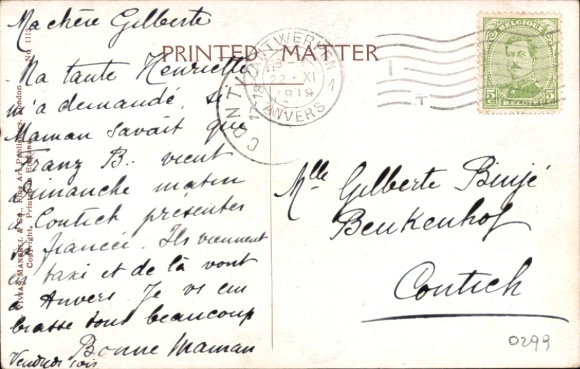 Ma chère Gilberte
PRINTED MATTER
Ma tante Henriette
m'a demandé si
Maman savait que
Franz B. vient
dimanche matin
à Contich présenter
sa fiancée. Ils viennent
en taxi et de là vont
à Anvers. Je vs em
brasse tous beaucoup
Bonne Maman
Vendredi soir
VIVIAN MANSELL & Co., Fine Art Publishers, London
Copyright.
No 1118
ANTWERPEN 1
22 XI
1919
ANVERS
CONTICH
17-18
BELGIQUE
5
5
Mlle Gilberte Binjé
Beukenhof
Contich
0299